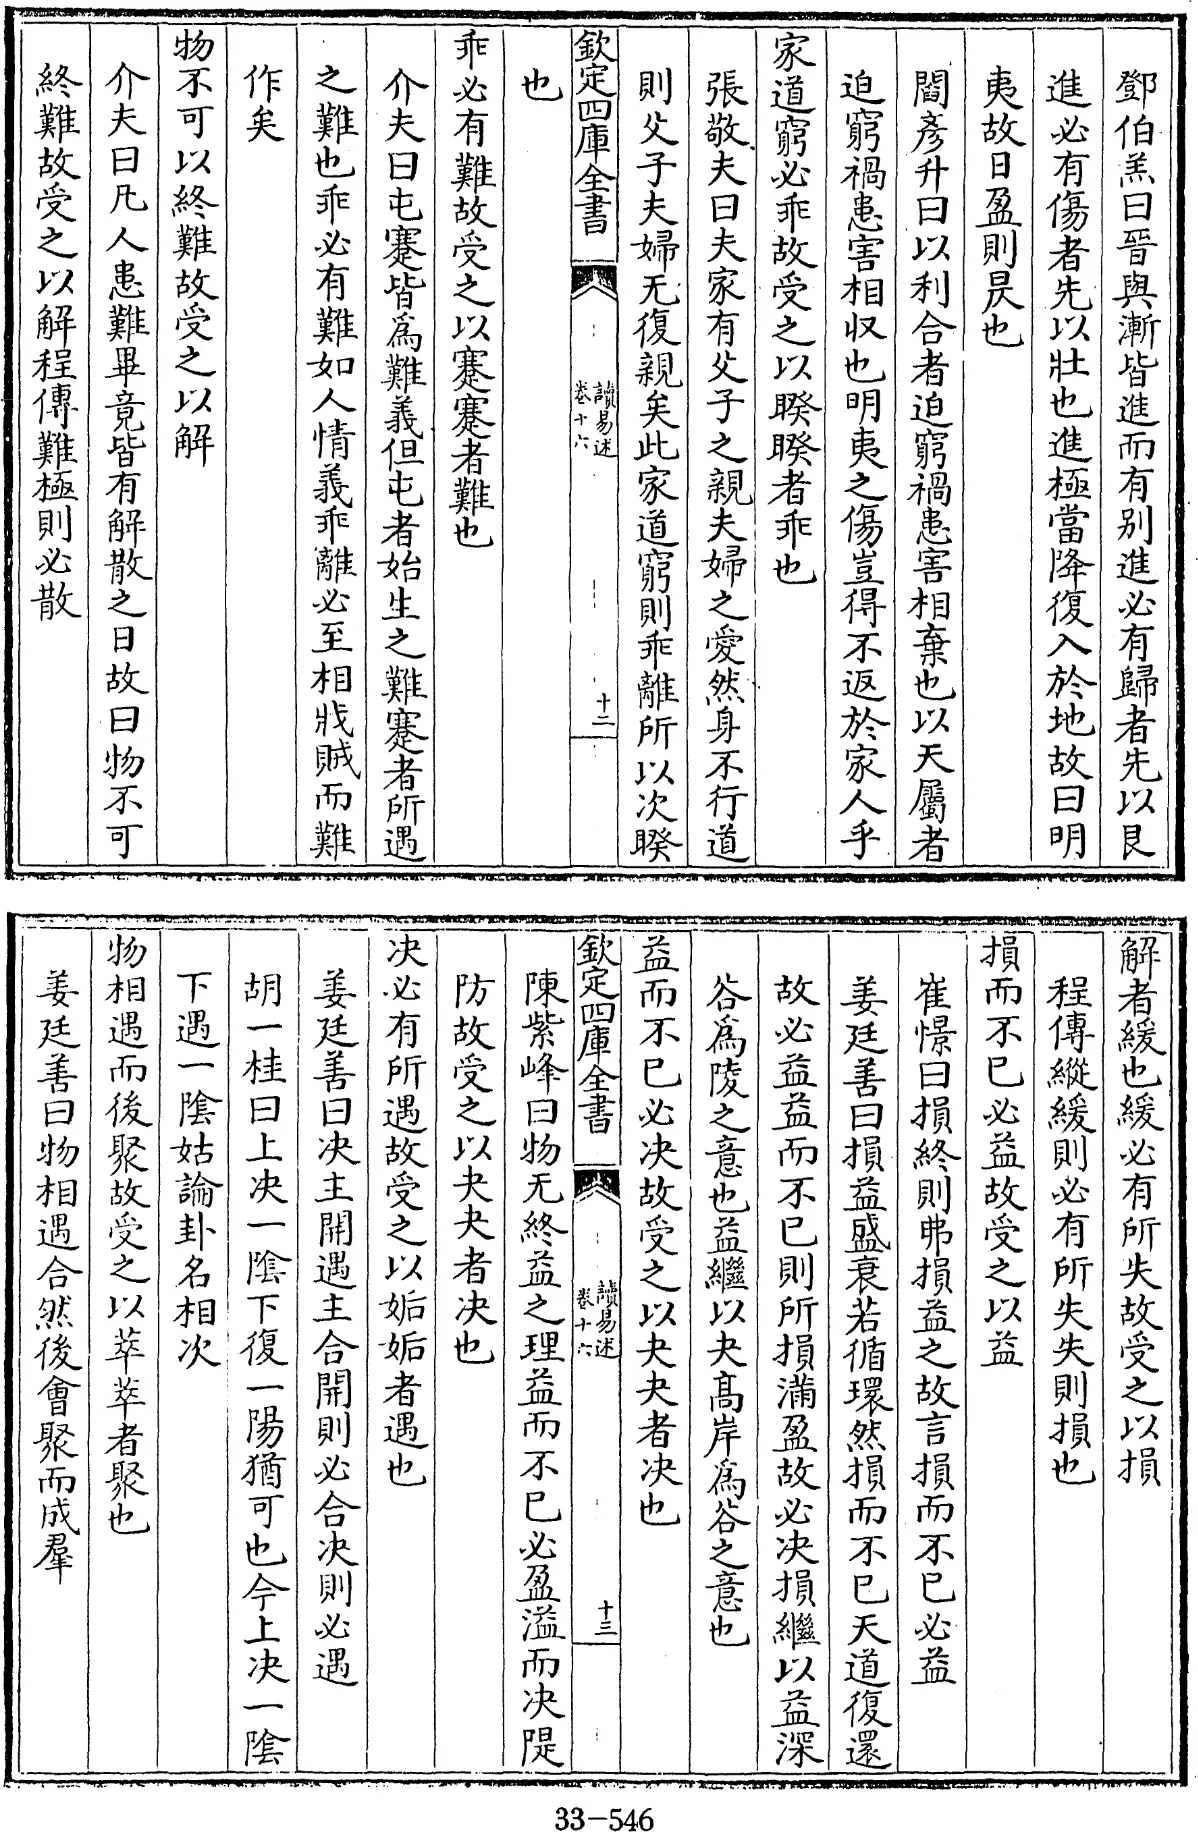 鄧伯羔曰晉與漸皆進而有别進必有歸者先以艮
進必有傷者先以壯也進極當降復入於地故曰明
夷故日盈則昃也
閻彦升曰以利合者迫窮禍患害相棄也以天屬者
迫窮禍患害相収也明夷之傷豈得不返於家人乎
家道窮必乖故受之以睽睽者乖也
張敬夫曰夫家有父子之親夫婦之愛然身不行道
則父子夫婦无復親矣此家道窮則乖離所以次睽
欽定四庫全書
讀易述
卷十六
十二
也
乖必有難故受之以蹇蹇者難也
介夫曰屯蹇皆爲難義但屯者始生之難蹇者所遇
之難也乖必有難如人情義乖離必至相戕賊而難
作矣
物不可以終難故受之以解
介夫曰凡人患難畢竟皆有解散之日故曰物不可
終難故受之以解程傳難極則必散
解者緩也緩必有所失故受之以損
程傳縱緩則必有所失失則損也
損而不已必益故受之以益
崔憬曰損終則弗損益之故言損而不已必益
姜廷善曰損益盛衰若循環然損而不已天道復還
故必益益而不已則所損滿盈故必决損繼以益深
谷爲陵之意也益繼以夬髙岸爲谷之意也
益而不已必决故受之以夬夬者决也
欽定四庫全書
讀易述
卷十六
十三
陳紫峰曰物无終益之理益而不已必盈溢而决隄
防故受之以夬夬者决也
决必有所遇故受之以姤姤者遇也
姜廷善曰决主開遇主合開則必合决則必遇
胡一桂曰上决一隂下復一陽猶可也今上决一隂
下遇一隂姑論卦名相次
物相遇而後聚故受之以萃萃者聚也
姜廷善曰物相遇合然後會聚而成羣
33-546